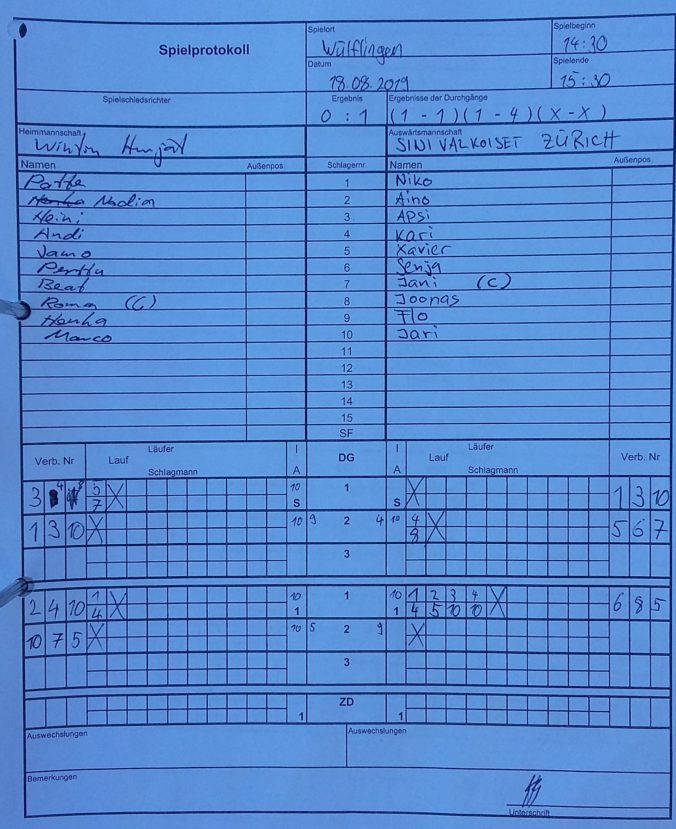 Spielprotokoll
Spielort
Wülflingen
Spielbeginn
14:30
Datum
18.08.2019
Spielende
15:30
Spielschiedsrichter
Ergebnis
0 : 1
Ergebnisse der Durchgänge
(1-1)(1-4)(X-X)
Heimmannschaft
Auswärtsmannschaft
SINIVALKOISET ZÜRICH
Namen Außenpos. Schlagernr. Namen Außenpos.
1 Niko
Nadia 2 Aino
Heini 3 Apsi
Andi 4 Kari
Jamo 5 Xavier
Perttu 6 Senja
Beat 7 Jani (C)
Roman (C) 8 Joonas
Henka 9 Flo
Marco 10 Jari
11
12
13
14
15
SF
Verb. Nr Lauf Läufer Schlagmann I A DG I A Lauf Läufer Schlagmann Verb. Nr
3 5 X 10 1 X 1 3 10
7 S S
1 3 10 X 10 9 2 4 10 4 X 5 6 7
8
3
2 4 10 1 X 10 1 10 1 2 3 4 X 6 8 5
4 1 1 4 5 10 10
10 7 5 X 10 5 2 9 X
3
ZD
1 1
Auswechslungen Auswechslungen
Bemerkungen
Unterschrift